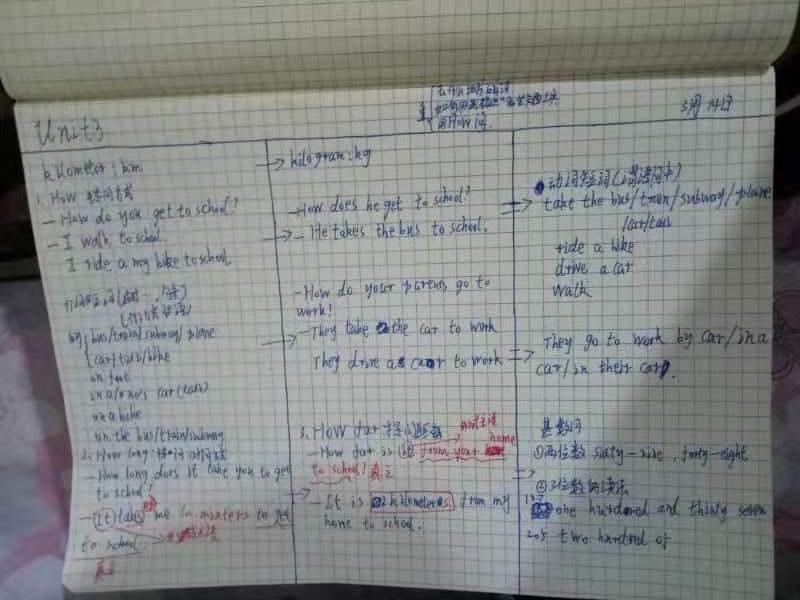 3月14日
Unit3
用How 问.
kilometer: km
1. How 提问方式
— How do you get to school?
— I walk to school.
I ride a my bike to school.
by: bus/train/subway/plane
car/taxi/bike
on foot
in a/one's car(taxi)
on a bike
on the bus/train/subway
2. How long 提问时间
— How long does it take you to get
to school?
— It takes me to get
to school.
kilogram: kg
— How does he get to school?
— He takes the bus to school.
— How do your parents go to
work?
— They take the car to work
They drive a car to work
3. How far 提问距离
— How far is it from your home
to school?
形式主语
真主
— It is 2 kilometers from my
home to school.
动词短词(谓语)
take the bus/train/subway/plane
/car/taxi
ride a bike
drive a car
walk
They go to work by car/in a
car/in their car.
基数词
①两位数 sixty-nine, forty-eight
②3位数的读法
137 one hundred and thirty seven
205 two hundred of